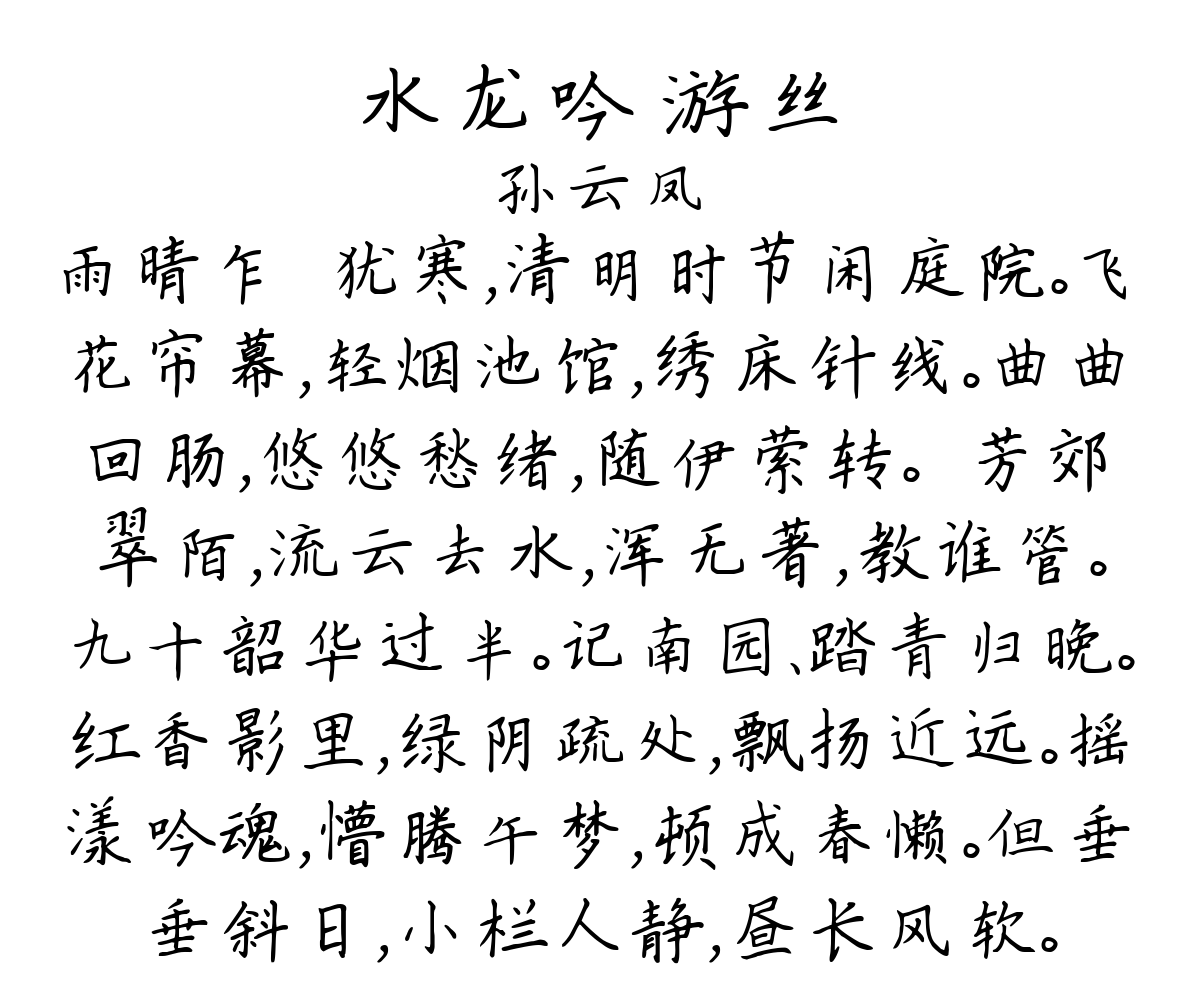 水龙吟 游丝
孙云凤
雨晴乍 犹寒,清明时节闲庭院。飞
花帘幕,轻烟池馆,绣床针线。曲曲
回肠,悠悠愁绪,随伊萦转。 芳郊
翠陌,流云去水,浑无著,教谁管。
九十韶华过半。记南园、踏青归晚。
红香影里,绿阴疏处,飘扬近远。摇
漾吟魂,懵腾午梦,顿成春懒。但垂
垂斜日,小栏人静,昼长风软。